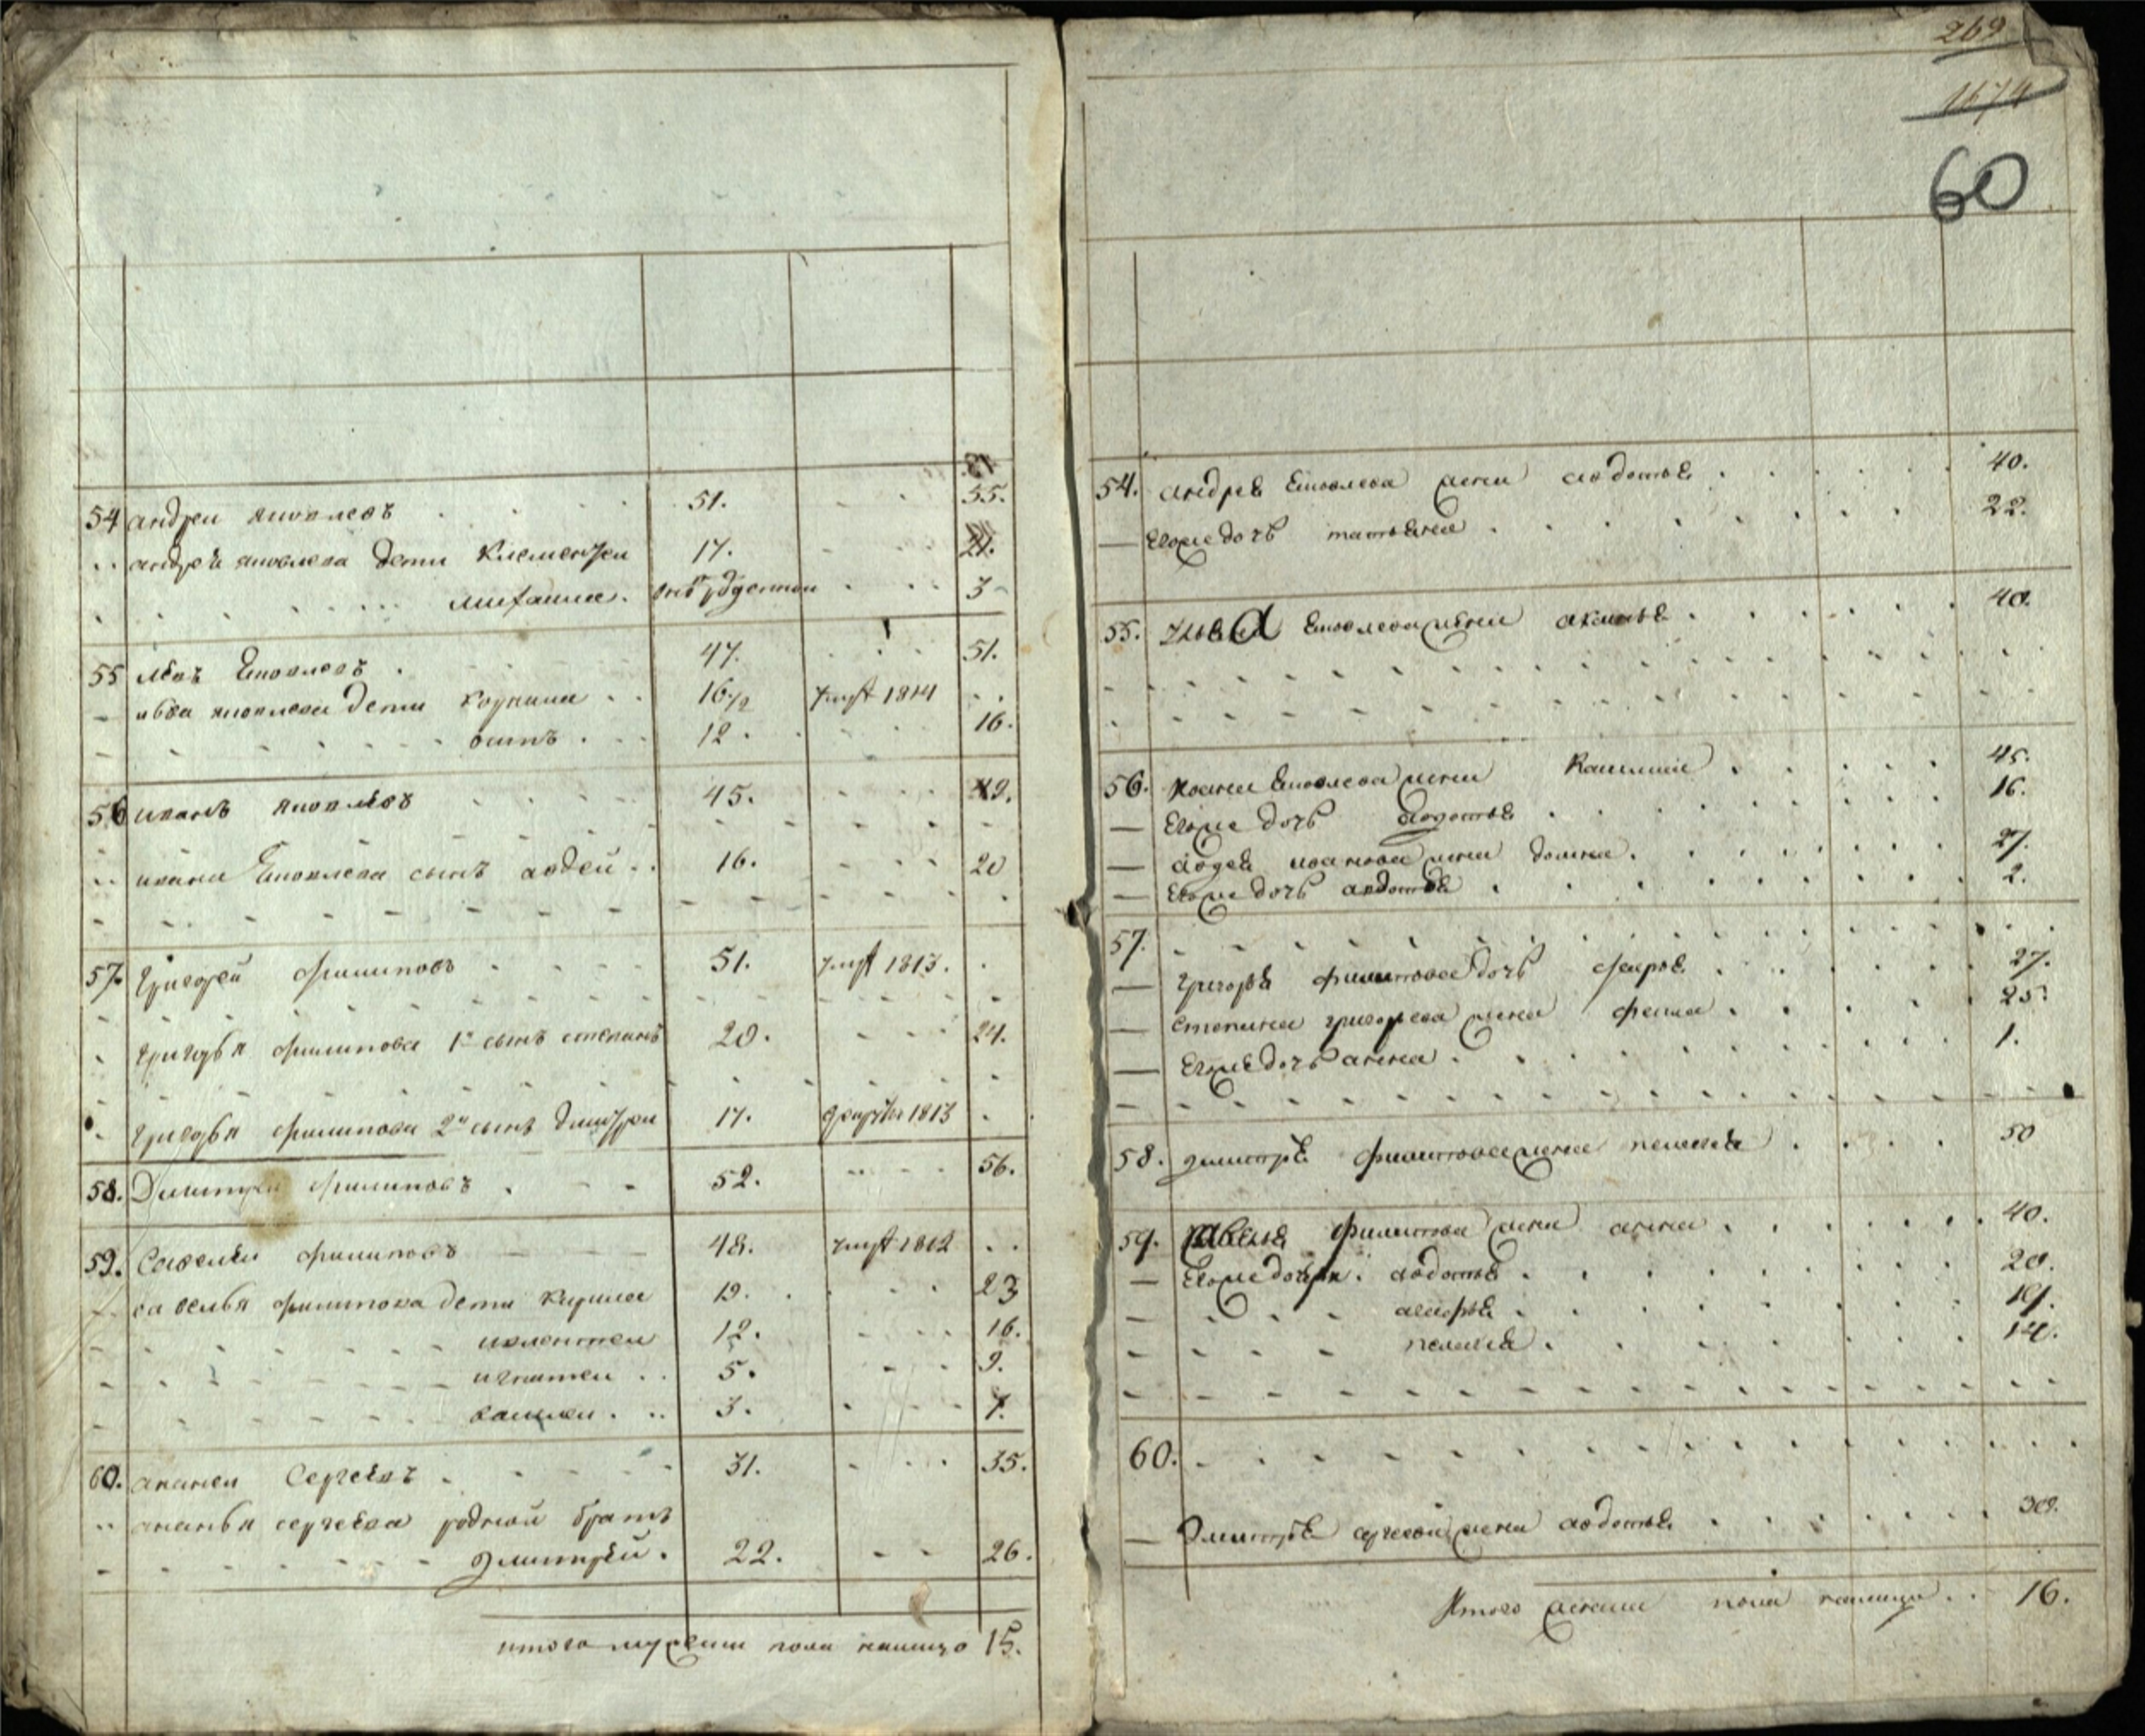 54 андреи яковлевъ 51. 55.
андрей яковлева дети клементеи 17. 21.
михаила. 3
55 левъ Яковлевъ 47. 51.
лва яковлева дети корнила 16 1/2 умре 1814
осипъ 12. 16.
56 иванъ яковлевъ 45. 49.
ивана Яковлева сынъ авдей 16. 20
57. григорей филиповъ 51. умре 1813.
григорья филипова 1й сынъ степанъ 20. 24.
григорья филипова 2й сынъ дмитреи 17. 1813
58. Димитреи филиповъ 52. 56.
59. Савелеи филиповъ 48. умре 1812
савелья филипова дети кирила 19. 23
12. 16.
игнатеи 5. 9.
3. 7.
60. ананеи Сергеевъ 31. 35.
ананья сергеева родной братъ
дмитрей. 22. 26.
итого мужеска пола налицо 15.
269
1674
60
54. андрея Яковлева жена авдотья 40.
Егоже дочь татьяна 22.
55. Яковлева жена 40.
56. ивана Яковлева жена 45.
Егоже дочь авдотья 16.
авдея иванова жена домна. 27.
Егоже дочь авдотья 2.
57.
григорья филипова дочь 27.
степана григорьева жена 25.
Егоже дочь анна 1.
58. димитрея филипова жена пелагея 50
59. савелья филипова жена анна 40.
Егоже дочери. авдотья 20.
19.
пелагея 14.
60.
Дмитрея сергеева жена авдотья 30.
Итого женска пола налицо 16.